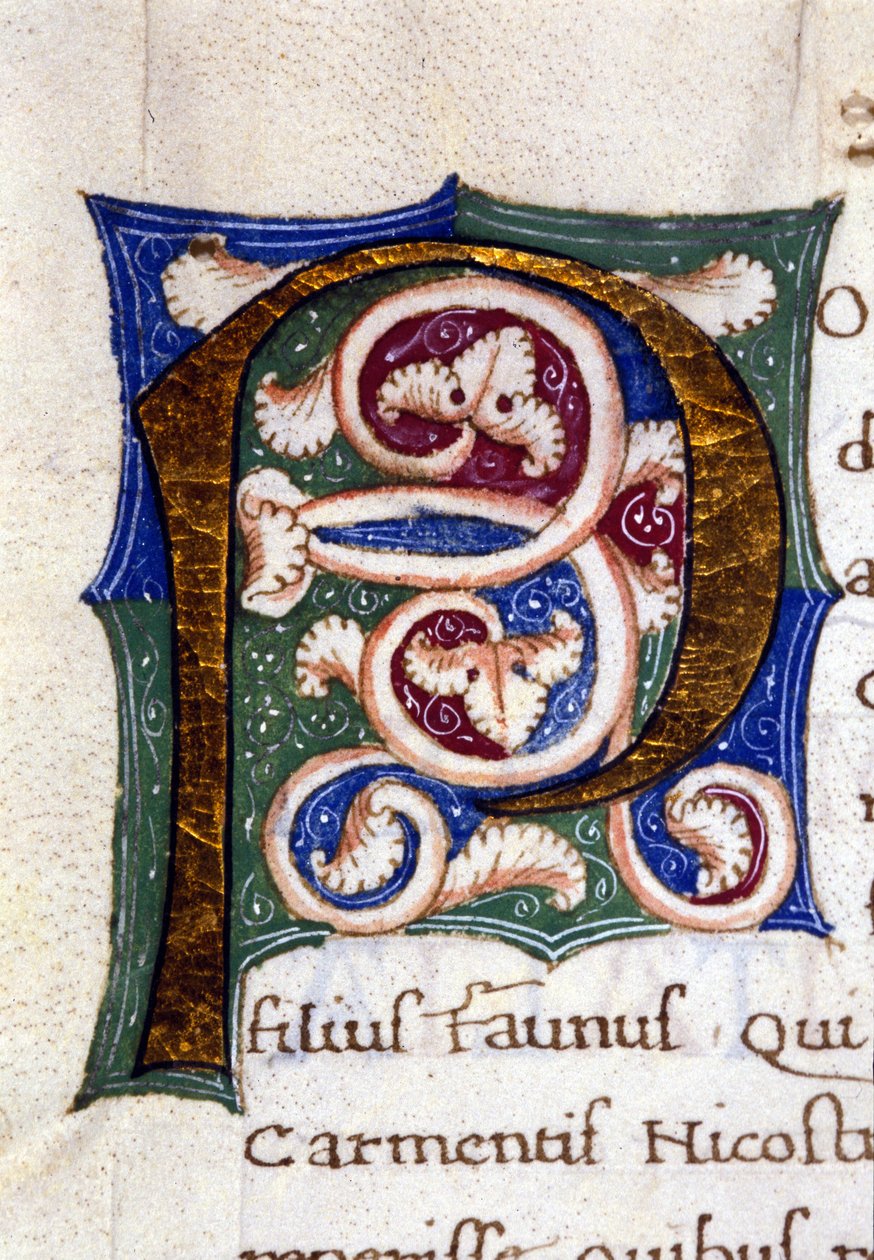 P
O
d
a
filiuſ Faunuſ Qui
Carmentiſ Nicoſtr
quibuſ